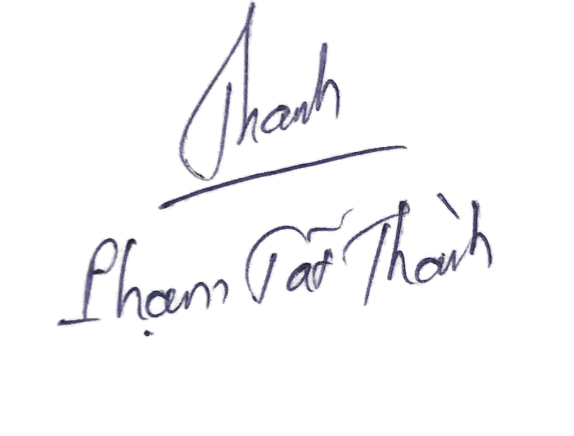 Thanh
Phạm Tất Thành